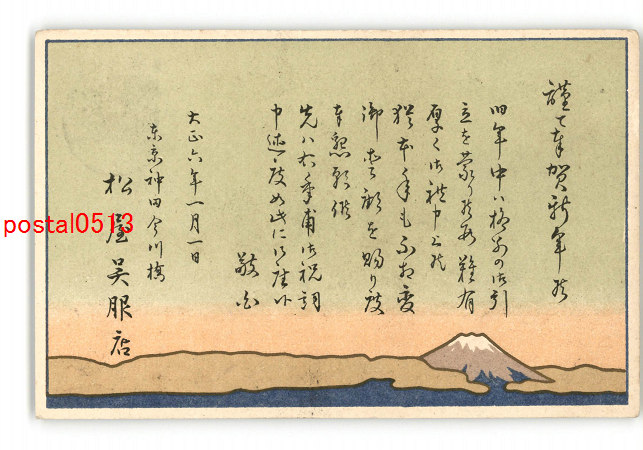 謹て奉賀新年候
旧年中ハ格別の御引
立を蒙り候段難有
厚く御礼申上候
猶本年も不相変
御愛顧を賜り度
奉懇願候
先ハ右年甫御祝詞
申述度如此に御座候
敬白
大正六年一月一日
東京神田今川橋
松屋呉服店
postal0513